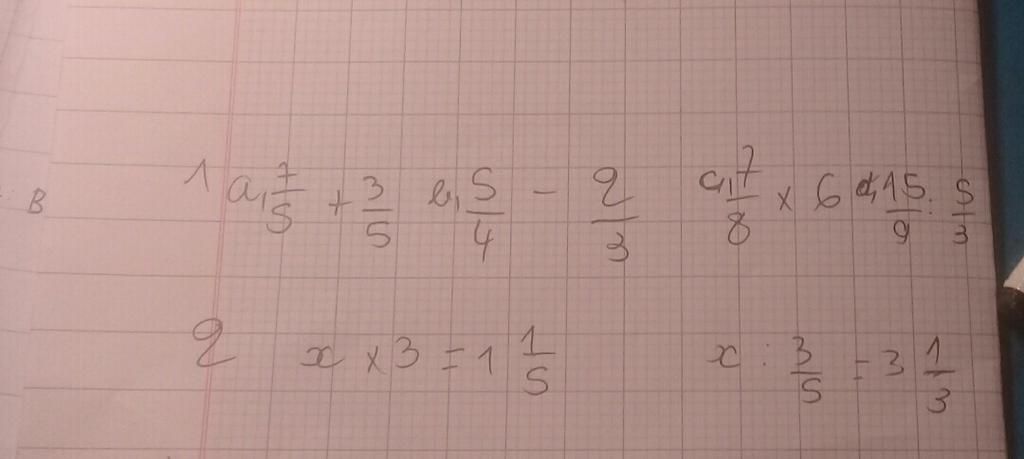 1 a, 7/5 + 3/5 b, 5/4 - 2/3 c, 7/8 x 6 d, 15/9 : 5/3
B
2 x x 3 = 1 1/5 x : 3/5 = 3 1/3